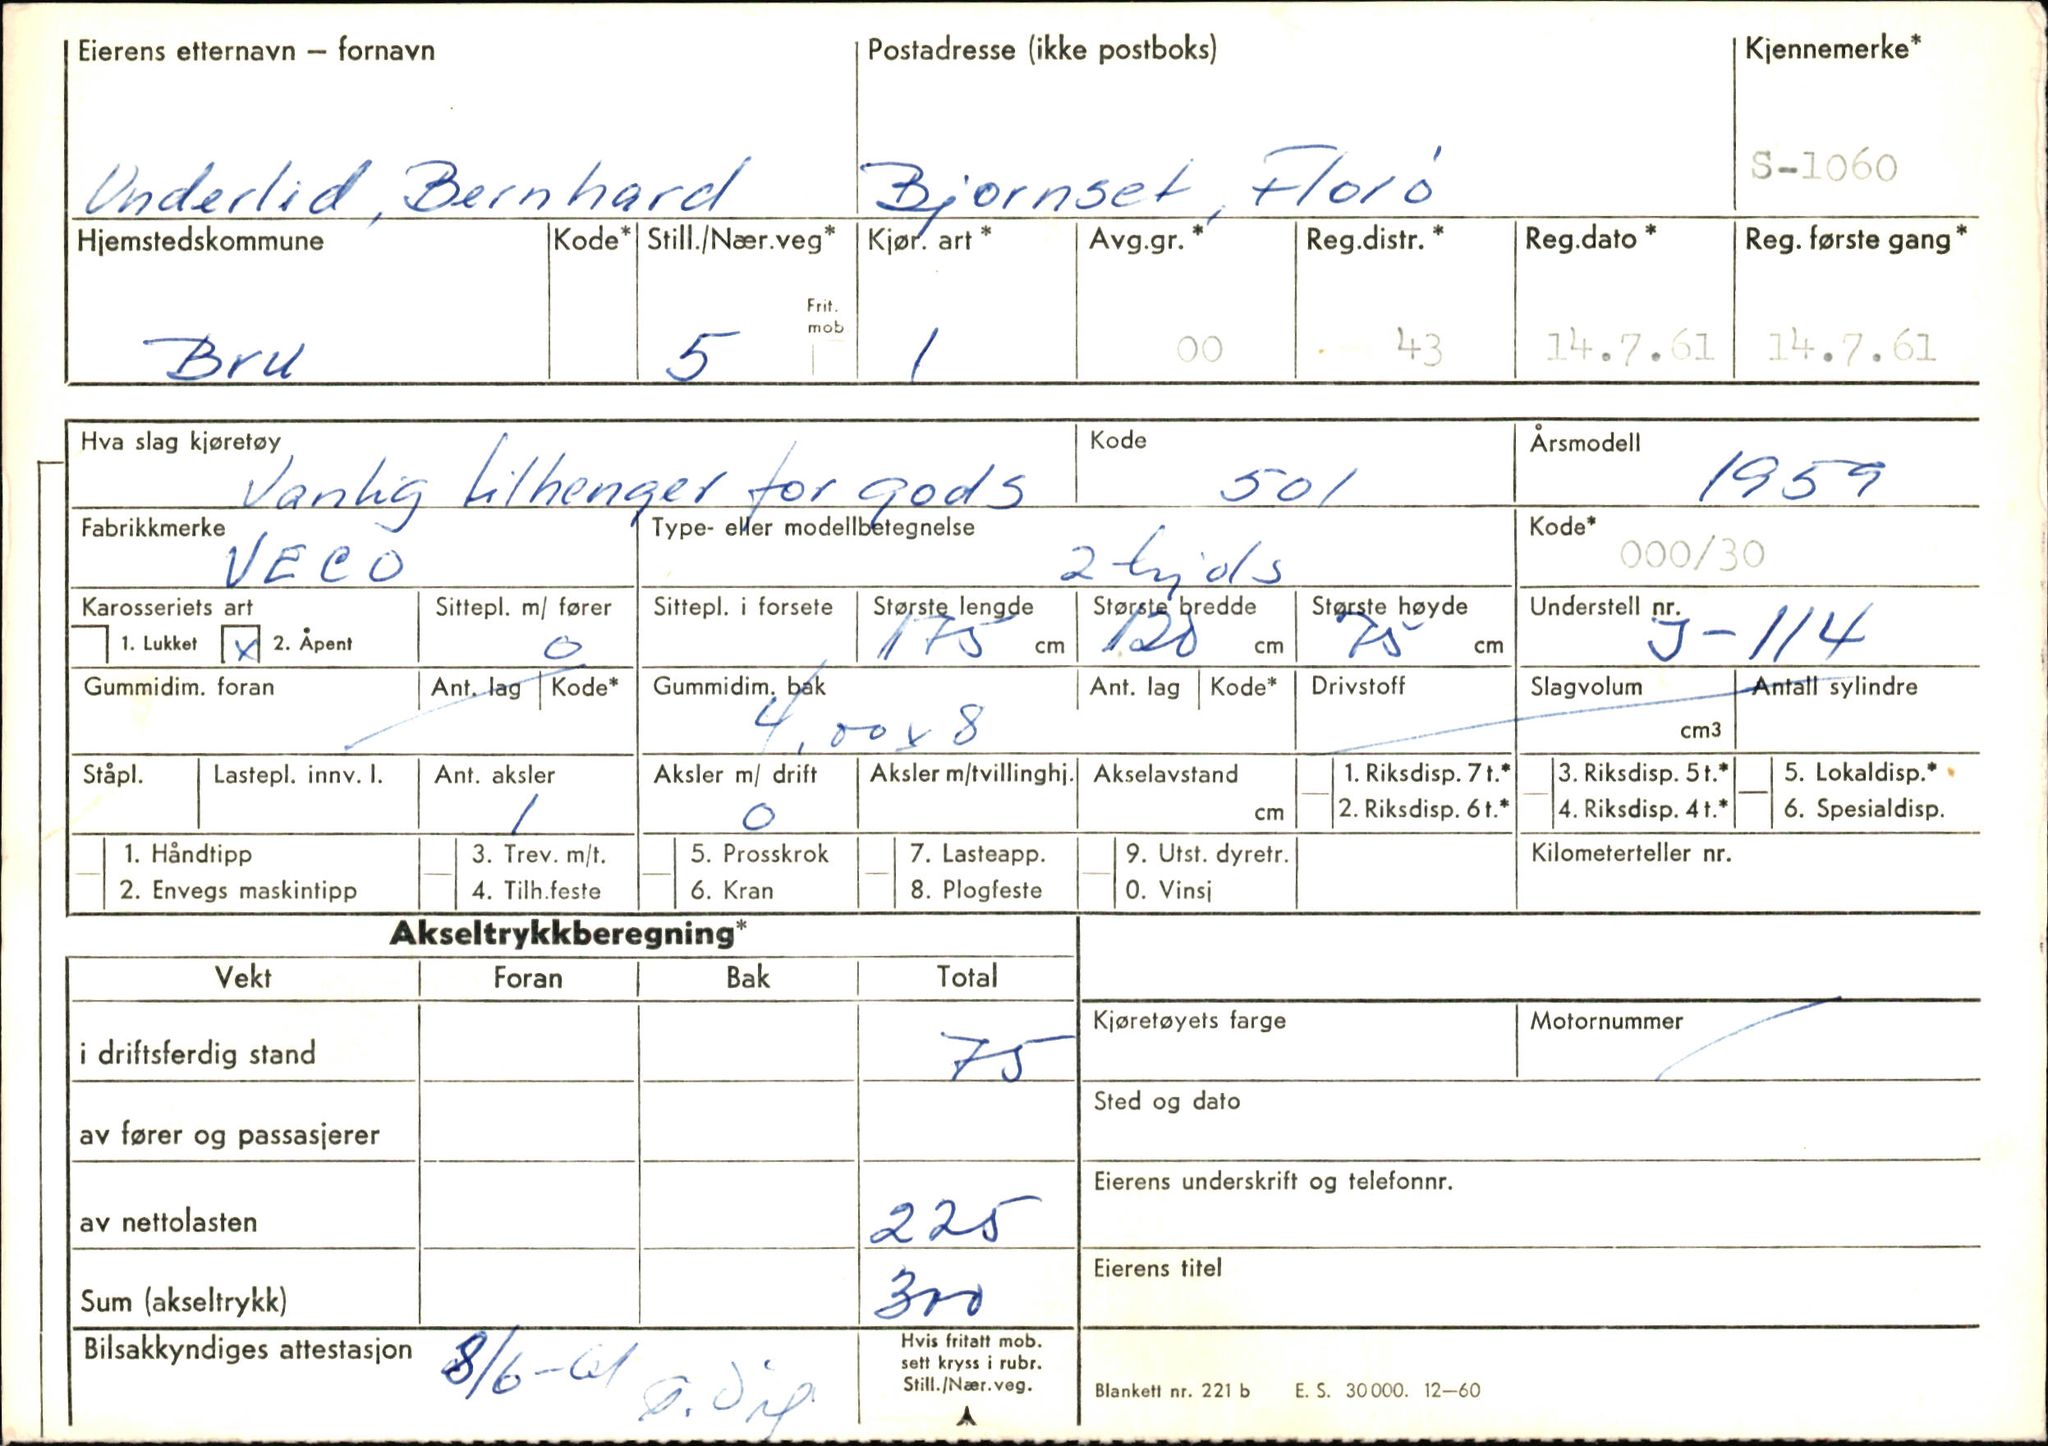 Eierens etternavn – fornavn Postadresse (ikke postboks) Kjennemerke*
Underlid, Bernhard Bjørnset, Florø S-1060
Hjemstedskommune Kode* Still./Nær.veg* Kjør. art* Avg.gr.* Reg.distr.* Reg.dato* Reg. første gang*
Frit.
mob
Bru 5 1 00 43 14.7.61 14.7.61
Hva slag kjøretøy Kode Årsmodell
Vanlig tilhenger for gods 501 1959
Fabrikkmerke Type- eller modellbetegnelse Kode*
VECO 2 hjuls 000/30
Karosseriets art Sittepl. m/ fører Sittepl. i forsete Største lengde Største bredde Største høyde Understell nr.
1. Lukket x 2. Åpent 0 175 cm 120 cm 75 cm J-114
Gummidim. foran Ant. lag Kode* Gummidim. bak Ant. lag Kode* Drivstoff Slagvolum Antall sylindre
4,00x8 cm3
Ståpl. Lastepl. innv. l. Ant. aksler Aksler m/ drift Aksler m/tvillinghj. Akselavstand 1. Riksdisp. 7 t.* 3. Riksdisp. 5 t.* 5. Lokaldisp.*
1 0 cm 2. Riksdisp. 6 t.* 4. Riksdisp. 4 t.* 6. Spesialdisp.
1. Håndtipp 3. Trev. m/t. 5. Prosskrok 7. Lasteapp. 9. Utst. dyretr. Kilometerteller nr.
2. Envegs maskintipp 4. Tilh.feste 6. Kran 8. Plogfeste 0. Vinsj
Akseltrykkberegning*
Vekt Foran Bak Total
Kjøretøyets farge Motornummer
i driftsferdig stand 75
Sted og dato
av fører og passasjerer
Eierens underskrift og telefonnr.
av nettolasten 225
Eierens titel
Sum (akseltrykk) 300
Bilsakkyndiges attestasjon 8/6-61
Hvis fritatt mob.
sett kryss i rubr.
Still./Nær.veg.
Blankett nr. 221 b E. S. 30000. 12–60